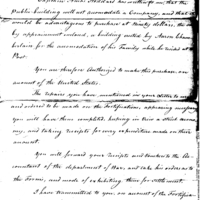 Captain Amos Stoddard has informed me, that the
public building will not accommodate a Company, and that it
would be advantageous to purchase at Ninety dollars, the
by appointment inland, a building owned by Aaron Cham
berlain for the accommodation of his Family while he resided at the
Post.
You are therefore Authorized to make this purchase, on
account of the United States.
The repairs you have mentioned in your letter to
and ordered to be made on the Fortifications, appearing necessary
you will have them completed, keeping in view a strict econo
my, and taking receipts for every expenditure made on their
account.
You will forward your receipts and vouchers to the Ac
countant of the department of War, and take his orders to
the Forms, and mode of exhibiting them for settlement.
I have transmitted to you, on account of the Fortifica